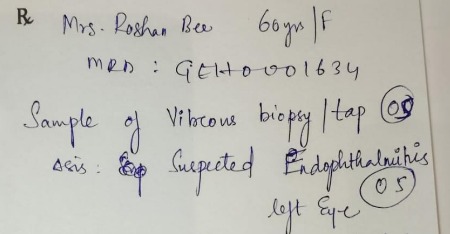 ℞ Mrs. Roshan Bee 60yrs/F
MRD : GEH0001634
Sample of Vitreous biopsy/tap OS
Δsis: Suspected Endophthalmitis
OS
left Eye